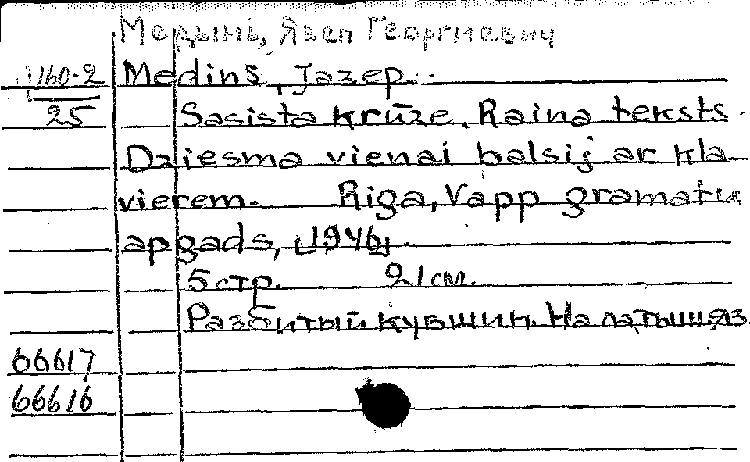 Медынь, Язеп Георгиевич
160-2 Medinš, Jazep.
25 Sasista krūze. Raina teksts.
Dziesma vienai balsij ar kla-
vierem. Riga, Vapp gramatu
apgads, [1946].
5 стр. 21 см.
Разбитый кувшин. На латыш. яз.
66617
66616